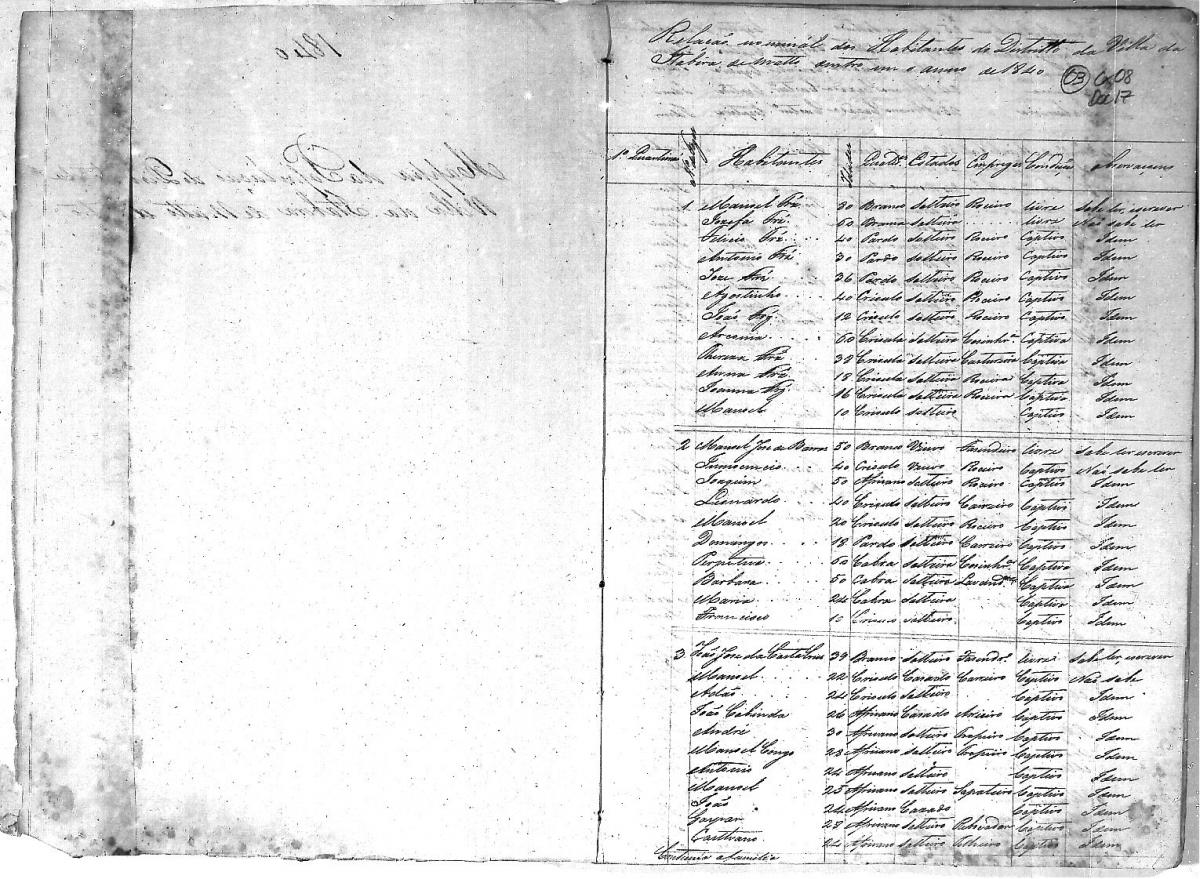 1840
Mappa da
Villa da Itabira de Matto
Relação nominál dos Habitantes do Districto da Villa da
Itabira de Matto dentro em o anno de 1840
03 Cx 08
Doc 17
Nº Quarteirões Habitantes Idades Qualids. Estados Empregos Condição Observaçoens
1 Manoel Frz 30 Branco solteiro Roceiro livre Sabe ler, escrever
Jozefa Frz 60 Branca solteira livre Não sabe ler
Felicio Frz 40 Pardo solteiro Roceiro Captivo Idem
Antonio Frz 30 Pardo solteiro Roceiro Captivo Idem
Joze Frz 36 Pardo solteiro Roceiro Captivo Idem
Agostinho 40 Crioulo solteiro Roceiro Captivo Idem
João Frz 12 Crioulo solteiro Roceiro Captivo Idem
60 Crioula solteira Cosinhra. Captiva Idem
Thereza Frz Crioula solteira Costureira Captiva Idem
Anna Frz 18 Crioula solteira Roceira Captiva Idem
Joanna Frz 16 Crioula solteira Roceira Captiva Idem
Manoel 10 Crioulo solteiro Captivo Idem
2 Manoel Joze de Barros 50 Branco Viuvo Fasendeiro livre Sabe ler, escrever
Innocencio 40 Crioulo Viuvo Roceiro Captivo Não sabe ler
Joaquim 50 Africano solteiro Roceiro Captivo Idem
Leonardo 40 Crioulo solteiro Carreiro Captivo Idem
Manoel 20 Crioulo solteiro Roceiro Captivo Idem
Domingos 18 Pardo solteiro Carreiro Captivo Idem
Perpetua 60 Cabra solteira Cosinhra. Captiva Idem
Barbara 50 Cabra solteira Captiva Idem
Maria 24 Cabra solteira Captiva Idem
Francisco 10 Crioulo solteiro Captivo Idem
3 João Joze da Costa 39 Branco solteiro Fasendro. livre Sabe ler, escrever
Manoel 22 Crioulo Casado Carreiro Captivo Não sabe
Adão 24 Crioulo solteiro Captivo Idem
João Cabinda 26 Africano Casado Arieiro Captivo Idem
André 30 Africano solteiro Tropeiro Captivo Idem
Manoel Congo 23 Africano solteiro Tropeiro Captivo Idem
Antonio 24 Africano solteiro Captivo Idem
Manoel 25 Africano solteiro Sapateiro Captivo Idem
João 24 Africano Casado Captivo Idem
Gaspar 28 Africano solteiro Captivo Idem
Caetano 24 Africano solteiro Captivo Idem
Continúa a familia